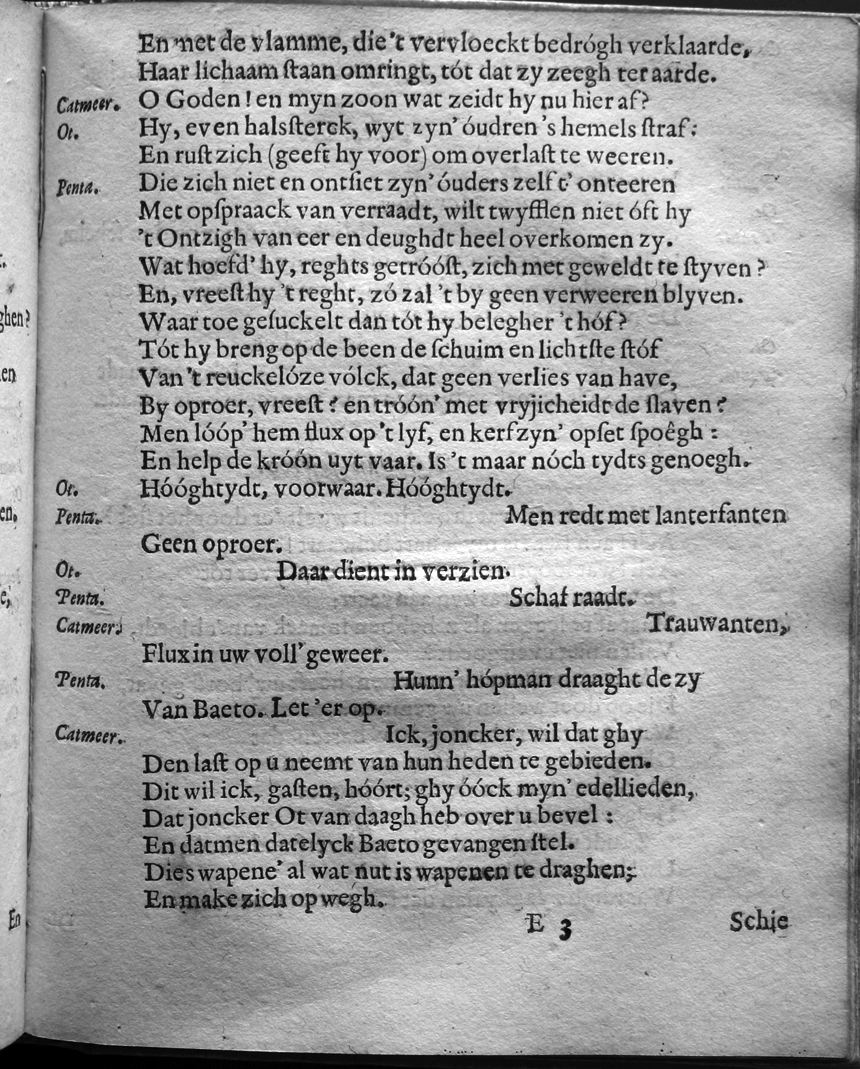 En met de vlamme, die 't vervloeckt bedrógh verklaarde,
Haar lichaam ſtaan omringt, tót dat zy zeegh ter aarde.
Catmeer. O Goden! en myn zoon wat zeidt hy nu hier af?
Ot. Hy, even halsſterck, wyt zyn' óudren 's hemels ſtraf:
En ruſt zich (geeft hy voor) om overlaſt te weeren.
Penta. Die zich niet en ontſiet zyn' óuders zelf t' onteeren
Met opſpraack van verraadt, wilt twyfflen niet óft hy
't Ontzigh van eer en deughdt heel overkomen zy.
Wat hoefd' hy, reghts getróóſt, zich met geweldt te ſtyven?
En, vreeſt hy 't reght, zó zal 't by geen verweeren blyven.
Waar toe geſuckelt dan tót hy belegher 't hóf?
Tót hy breng op de been de ſchuim en lichtſte ſtóf
Van 't reuckelóze vólck, dat geen verlies van have,
By oproer, vreeſt? en tróón' met vryjicheidt de ſlaven?
Men lóóp' hem flux op 't lyf, en kerf zyn' opſet ſpoêgh:
En help de króón uyt vaar. Is 't maar nóch tydts genoegh.
Ot. Hóóghtydt, voorwaar. Hóóghtydt.
Penta. Men redt met lanterfanten
Geen oproer.
Ot. Daar dient in verzien.
Penta. Schaf raadt.
Catmeer. Trauwanten,
Flux in uw voll' geweer.
Penta. Hunn' hópman draaght de zy
Van Baeto. Let 'er op.
Catmeer. Ick, joncker, wil dat ghy
Den laſt op u neemt van hun heden te gebieden.
Dit wil ick, gaſten, hóórt; ghy óóck myn' edellieden,
Dat joncker Ot van daagh heb over u bevel:
En datmen datelyck Baeto gevangen ſtel.
Dies wapene' al wat nut is wapenen te draghen;
En make zich op wegh.
E 3 Schie